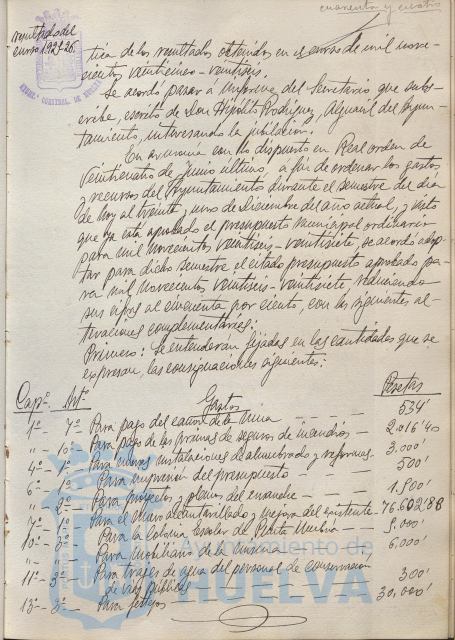 cuarenta y cuatro
resultado del
curso 1925-26.
tica de los resultados obtenidos en el curso de mil nove-
cientos veinticinco-veintiseis.
Se acordó pasar a informe del Secretario que subs-
cribe, escrito de Don Hipólito Rodríguez, Alguacil del Ayun-
tamiento, interesando la jubilación.
En armonía con lo dispuesto en Real orden de
veinticuatro de Junio último, a fin de ordenar los gastos
y recursos del Ayuntamiento durante el semestre de día
de hoy al treinta y uno de Diciembre del año actual, y visto
que ya está aprobado el presupuesto municipal ordinario
para mil novecientos veintiseis-veintisiete, se acordó adop-
tar para dicho semestre el citado presupuesto aprobado pa-
ra mil novecientos veintiseis-veintisiete, reduciendo
sus cifras al cincuenta por ciento, con las siguientes al-
teraciones complementarias:
Primero: Se entenderán fijadas en las cantidades que se
expresan, las consignaciones siguientes:
Capº. Artº. Gastos Pesetas
1º- 7º- Para pago del canon de la mina 534'
" - 10º- Para pago de las primas de seguros de incendios- 2.016'40
4º- 1º- Para nuevas instalaciones de alumbrado y reformas. 3.000'
6º- 1º- Para impresión del presupuesto 500'
" - 2º- Para proyectos y planos del ensanche - 1.500'
7º- Para el nuevo alcantarillado y mejora del existente. 76.602'88
10º- Para la Colonia Escolar de Punta Umbría 5.000'
" Para mobiliario de la misma 6.000'
11º- 3º- Para trajes de agua del personal de conservación
de vías públicas 300'
13º- 3º- Para festejos 30.000'
Ayuntamiento de
HUELVA